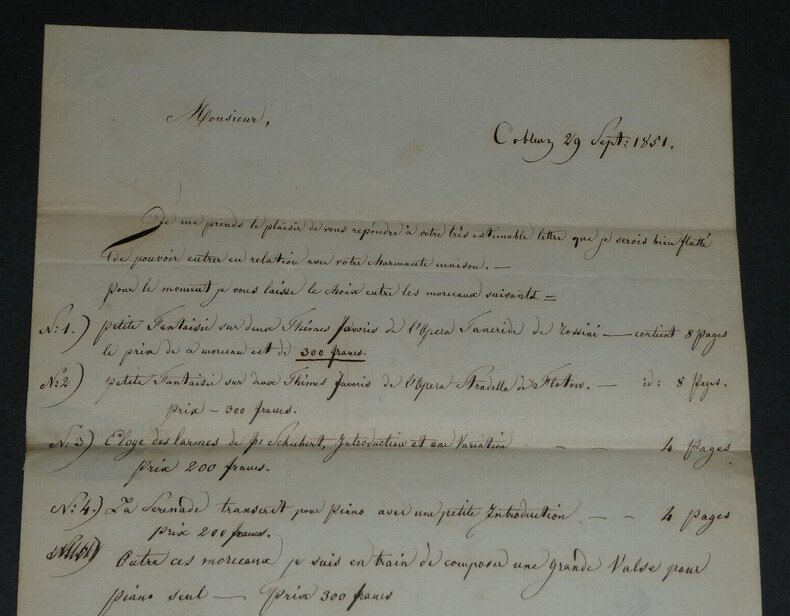 Monsieur,
Coblenz 29 Sept: 1851.
Je me prends le plaisir de vous repondre à votre très estimable lettre que je serois bien flatté
de pouvoir entrer en relation avec votre charmante maison. —
pour le moment je vous laisse le choix entre les morceaux suivants =
No: 1.) petite Fantaisie sur deux Thêmes favoris de l'Opera Tancrède de Rossini — contient 8 pages
le prix de ce morceau est de 300 francs.
No: 2) petite Fantaisi sur deux Thêmes favoris de l'Opera Stradella de Flotow. — id: 8 Pages.
Prix — 300 francs.
No: 3) Eloge des larmes de Schubert, Introduction et une Variation — — 4 pages
Prix 200 francs.
No: 4.) La Serenade transcrit pour Piano avec une petite Introduction. — — 4 pages
Prix 200 francs.
Outre ces morceaux je suis en train de composer une grande Valse pour
piano seul — Prix 300 francs